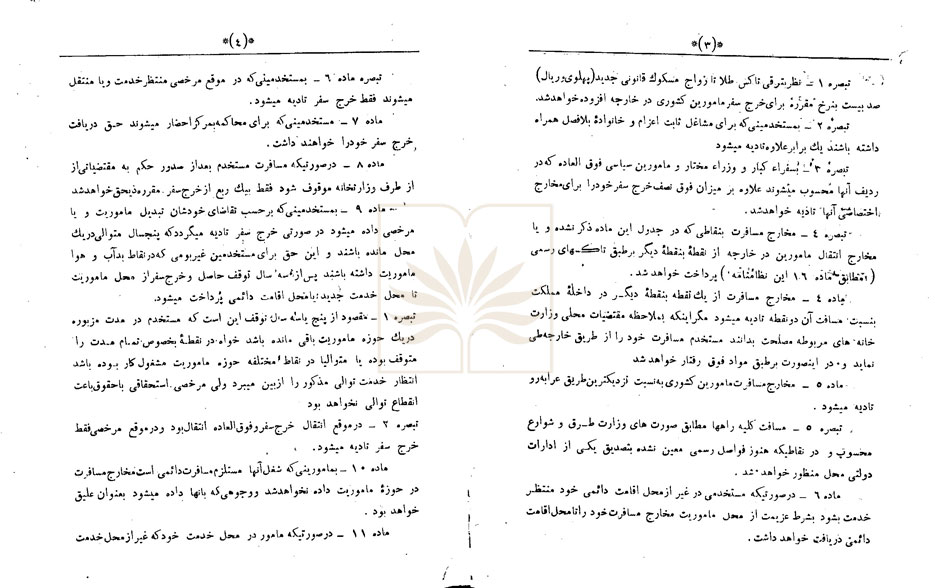 *(۳)*
تبصره ۱ ــ نظر بترقی تاکس طلا تا رواج مسکوك قانونی جدید (پهلوی و ریال)
صد بیست بنرخ مقرره برای خرج سفر مامورین کشوری در خارجه افزوده خواهد شد.
تبصره ۲ ــ بمستخدمینی که برای مشاغل ثابت اعزام و خانوادهٔ بلافصل همراه
داشته باشند یك برابر علاوه تادیه میشود
تبصره ۳ ــ بسفراء کبار و وزراء مختار و مامورین سیاسی فوق العاده که در
ردیف آنها محسوب میشوند علاوه بر میزان فوق نصف خرج سفر خود را برای مخارج
اختصاصی آنها تادیه خواهد شد.
تبصره ٤ ــ مخارج مسافرت بنقاطی که در جدول این ماده ذکر نشده و یا
مخارج انتقال مامورین در خارجه از نقطهٔ بنقطهٔ دیگر برطبق تاکسهای رسمی
(مطابق ماده ۱٦ این نظامنامه) پرداخت خواهد شد.
ماده ٤ ــ مخارج مسافرت از یك نقطه بنقطهٔ دیگر در داخلهٔ مملکت
بنسبت مسافت آن دو نقطه تادیه میشود مگر اینکه بملاحظه مقتضیات محلی وزارت
خانه های مربوطه مصلحت بدانند مستخدم مسافرت خود را از طریق خارجه طی
نماید و در اینصورت برطبق مواد فوق رفتار خواهد شد
ماده ۵ ــ مخارج مسافرت مامورین کشوری به نسبت نزدیکترین طریق عرابه رو
تادیه میشود .
تبصره ۵ ــ مسافت کلیه راهها مطابق صورت های وزارت طرق و شوارع
محسوب و در نقاطیکه هنوز فواصل رسمی معین نشده بتصدیق یکی از ادارات
دولتی محل منظور خواهد شد .
ماده ٦ ــ در صورتیکه مستخدمی در غیر از محل اقامت دائمی خود منتظر
خدمت بشود بشرط عزیمت از محل ماموریت مخارج مسافرت خود را تا محل اقامت
دائمی دریافت خواهد داشت .
*(٤)*
تبصره ماده ٦ ــ بمستخدمینی که در موقع مرخصی منتظر خدمت و یا منتقل
میشوند فقط خرج سفر تادیه میشود .
ماده ۷ ــ مستخدمینی که برای محاکمه بمرکز احضار میشوند حق دریافت
خرج سفر خود را خواهند داشت .
ماده ۸ ــ در صورتیکه مسافرت مستخدم بعد از صدور حکم به مقتضیاتی از
از طرف وزارتخانه موقوف شود فقط بیك ربع از خرج سفر مقرره ذیحق خواهد شد
ماده ۹ ــ بمستخدمینی که برحسب تقاضای خودشان تبدیل ماموریت و یا
مرخصی داده میشود در صورتی خرج سفر تادیه میگردد که پنجسال متوالی در یك
محل مانده باشند و این حق برای مستخدمین غیر بومی که در نقاط بد آب و هوا
ماموریت داشته باشند پس از سه سال توقف حاصل و خرج سفر از محل ماموریت
تا محل خدمت جدید یا محل اقامت دائمی پرداخت میشود.
تبصره ۱ ــ مقصود از پنج یا سه سال توقف این است که مستخدم در مدت مزبوره
در یك حوزه ماموریت باقی مانده باشد خواه در نقطهٔ بخصوص تمام مدت را
متوقف بوده یا متوالیا در نقاط مختلفه حوزه ماموریت مشغول کار بوده باشد
انتظار خدمت توالی مذکور را از بین میبرد ولی مرخصی استحقاقی با حقوق باعث
انقطاع توالی نخواهد بود
تبصره ۲ ــ در موقع انتقال خرج سفر و فوق العاده انتقال بود و در موقع مرخصی فقط
خرج سفر تادیه میشود.
ماده ۱۰ ــ بمامورینی که شغل آنها مستلزم مسافرت دائمی است مخارج مسافرت
در حوزهٔ ماموریت داده نخواهد شد و وجوهی که بانها داده میشود بعنوان علیق
خواهد بود .
ماده ۱۱ ــ در صورتیکه مامور در محل خدمت خود که غیر از محل خدمت